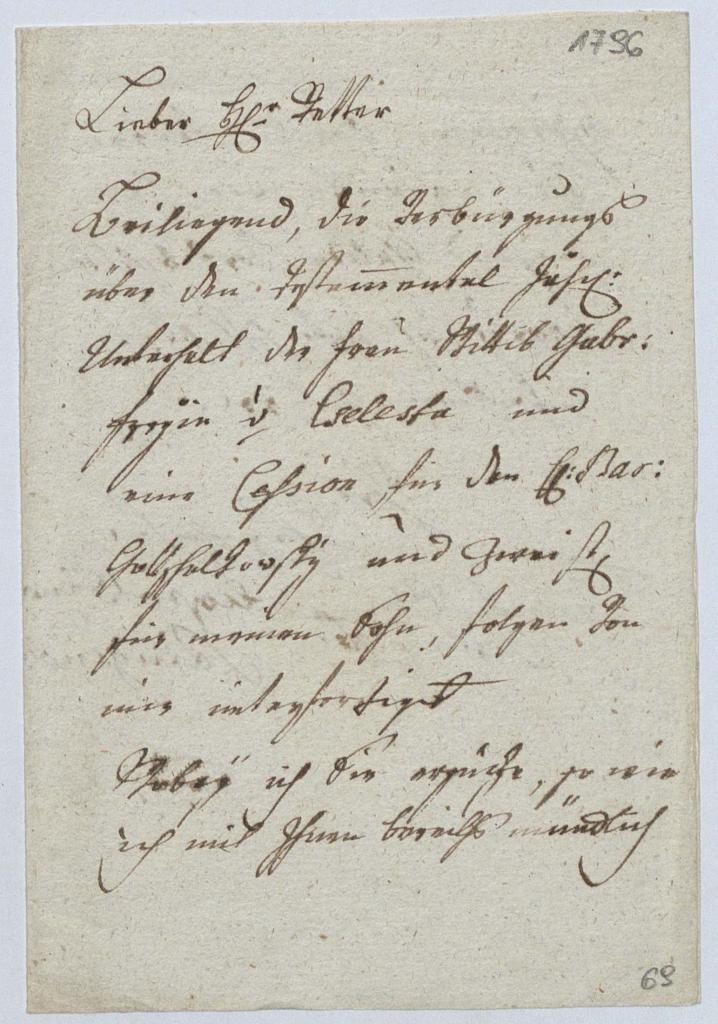 1796
Lieber H: Vetter
Beiliegend, die Verbürgungs
über den Testammentel Jährl:
Unterhalt der Frau Wittib Gabr:
und
eine Cession für den H: Bar:
und zwei St
für meinen Sohn, folgen von
mir unterfertiget
Wobey ich Sie ersuche, so wie
ich mit Ihnen bereiths mündlich
69